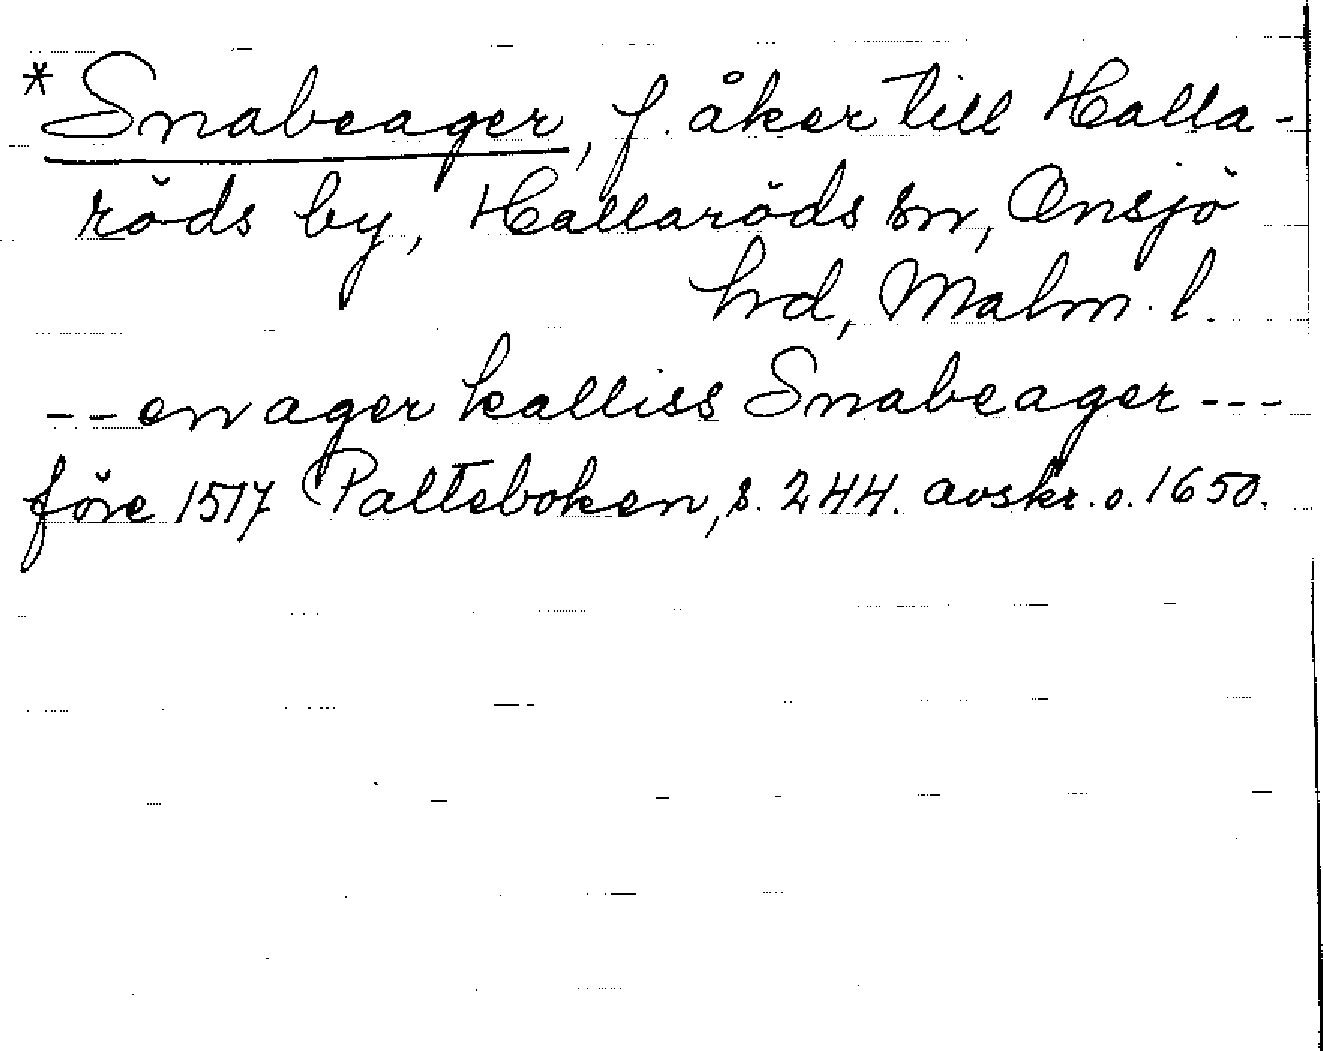 * Snabeager, f. åker till Halla-
röds by, Hallaröds sn, Onsjö
hd, Malm. l.
-- en ager kalliss Snabeager ---
före 1517 Palteboken, s. 244. avskr. o. 1650.